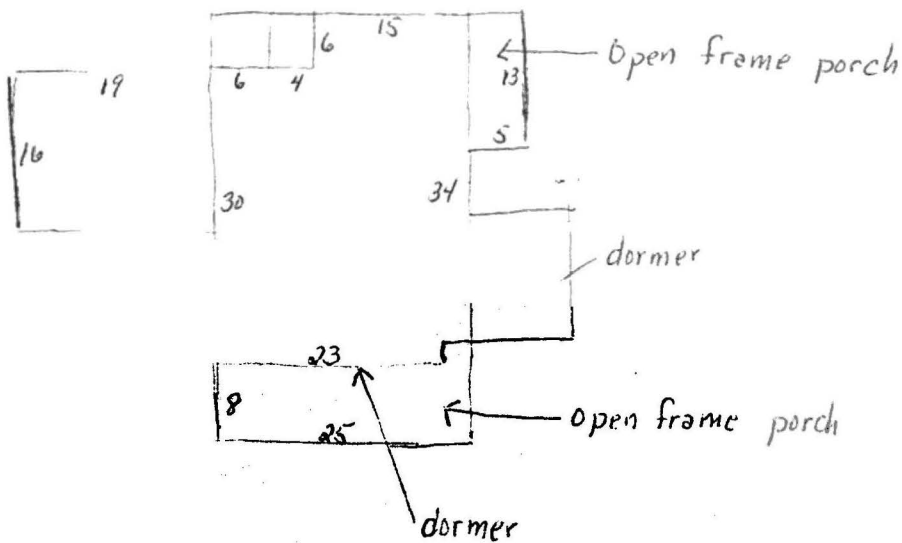 15
6
Open frame porch
6 4
13
19
5
16
30
34
dormer
23
8
open frame porch
25
dormer